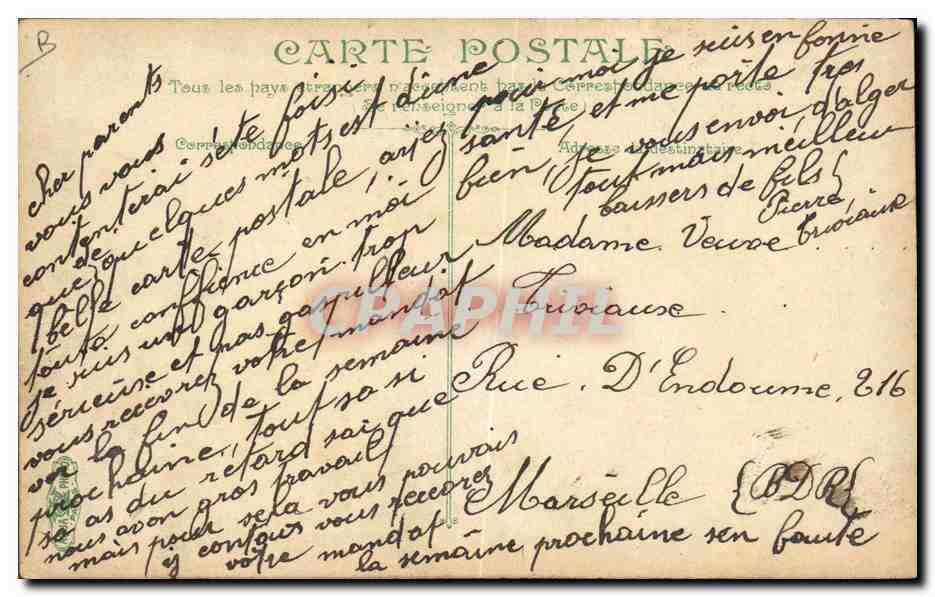 B
CARTE POSTALE
Tous les pays étrangers n'acceptent pas la Correspondance au recto
(Se renseigner à la Poste)
Correspondance
Adresse du destinataire
cher parents
vous vous
contenterai sete foisi
que de quelques mots est d'une
belle carte postale, aijez
toute confience en moi
je suis un garçon trop
sérieuse et pas gaspilleur
vous recevrez votre mandat
ver la fin de la semaine
prochaine, tout sa si
sa as du retard sai que
nous avon gros travail
mais pour sela vous pouvais
y contais vous recevrez
votre mandat
la semaine prochaine sen faute
pour moi je suis en bonne
santé et me porte tres
bien, je vous envoi, d'alger
tout mais meilleur
baisers de fils
Pierre
Madame Veuve
Rue. D'Endoume, 216
Marseille (BDR)
CPAPHIL